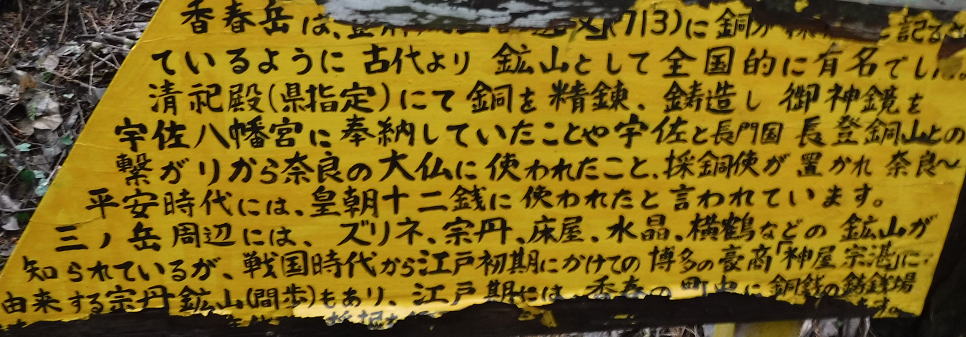 香春岳は、(713)に銅が記され
ているように古代より 鉱山として全国的に有名でした。
清祀殿(県指定)にて銅を精錬、鋳造し 御神鏡を
宇佐八幡宮に奉納していたことや宇佐と長門国 長登銅山との
繋がりから奈良の大仏に使われたこと、採銅使が置かれ 奈良〜
平安時代には、皇朝十二銭に使われたと言われています。
三ノ岳周辺には、ズリネ、宗丹、床屋、水晶、横鶴などの鉱山が
知られているが、戦国時代から江戸初期にかけての博多の豪商「神屋宗湛」に
由来する宗丹鉱山(間歩)もあり、江戸期には、香春の町中に銅銭の鋳銭場
ます。